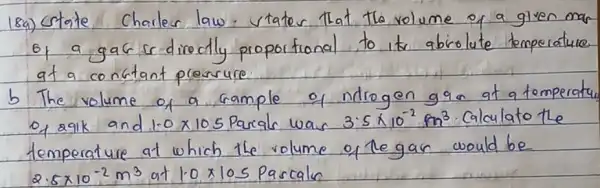 18a) State Charles law. states that the volume of a given mas
of a gas is directly proportional to its absolute temperature
at a constant pressure.
b The volume of a sample of nitrogen gan at a temperatu
of 291k and 1.0 x 105 Parcals was 3.5 x 10⁻² m³. Calculate the
temperature at which the volume of the gas would be
2.5x10⁻² m³ at 1.0 x 105 Parcals